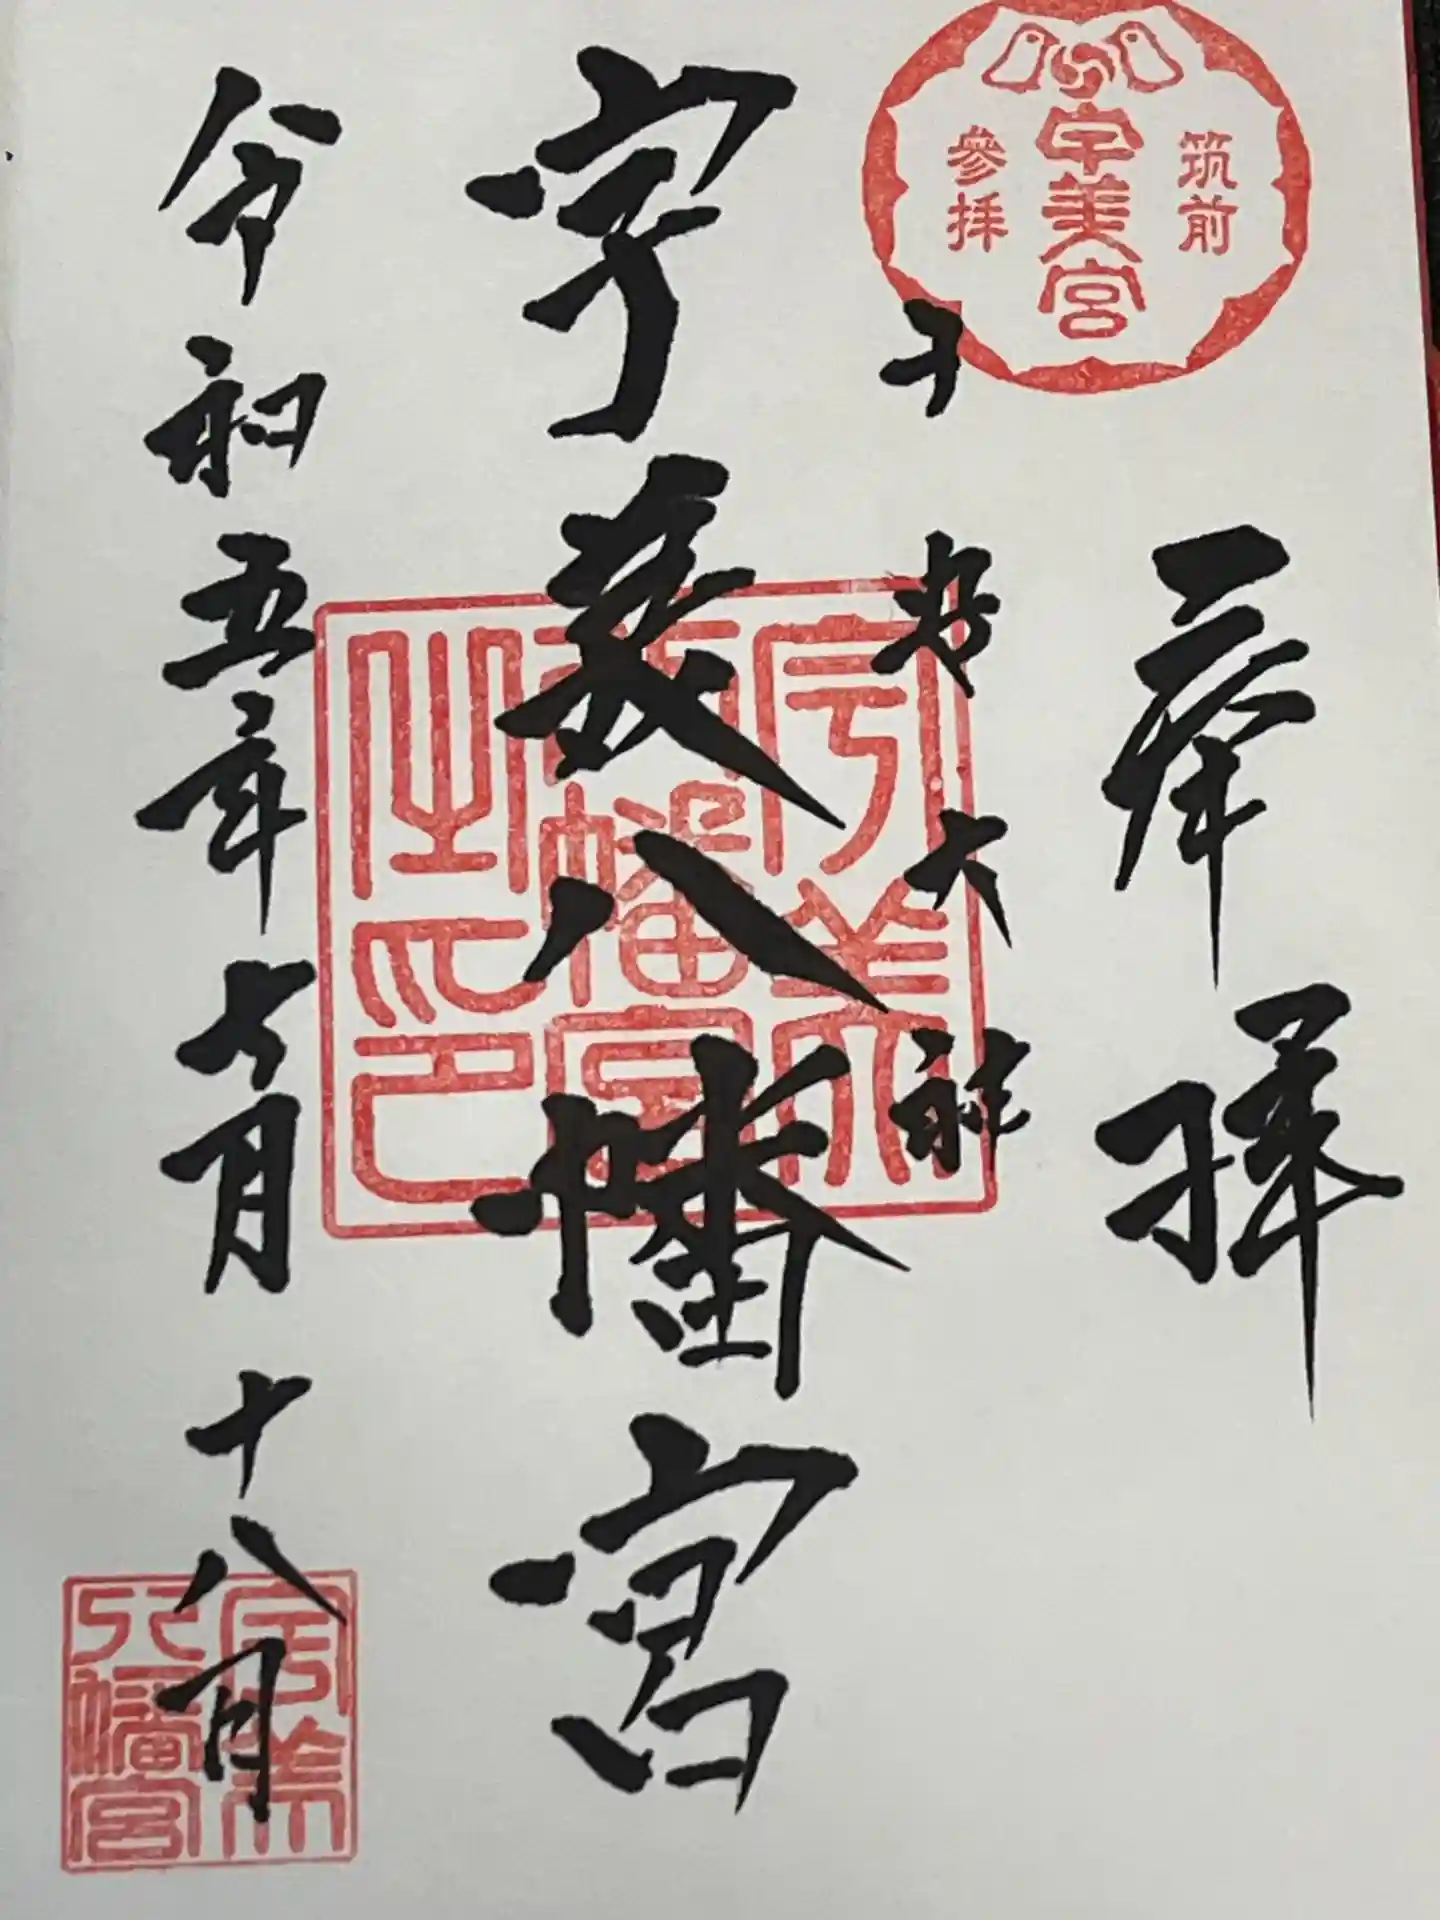 筑前
宇美宮
參拝
奉拝
子安大神
宇美八幡宮
令和五年七月十八日
宇美八幡宮之印
宇美八幡宮